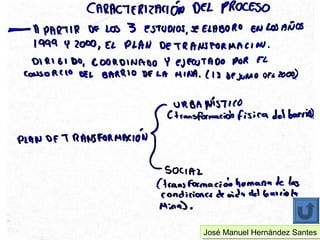 CARACTERIZACIÓN DEL PROCESO
- A PARTIR DE LOS 3 ESTUDIOS, SE ELABORO EN LOS AÑOS
1999 Y 2000, EL PLAN DE TRANSFORMACION.
DIRIGIDO, COORDINADO Y EJECUTADO POR EL
CONSORCIO DEL BARRIO DE LA MINA. (13 DE JUNIO DEL 2000)
URBANÍSTICO
(transformación física del barrio)
PLAN DE TRANSFORMACIÓN
SOCIAL
(transformación humana de las
condiciones de vida del barrio la
Mina).
José Manuel Hernández Santes